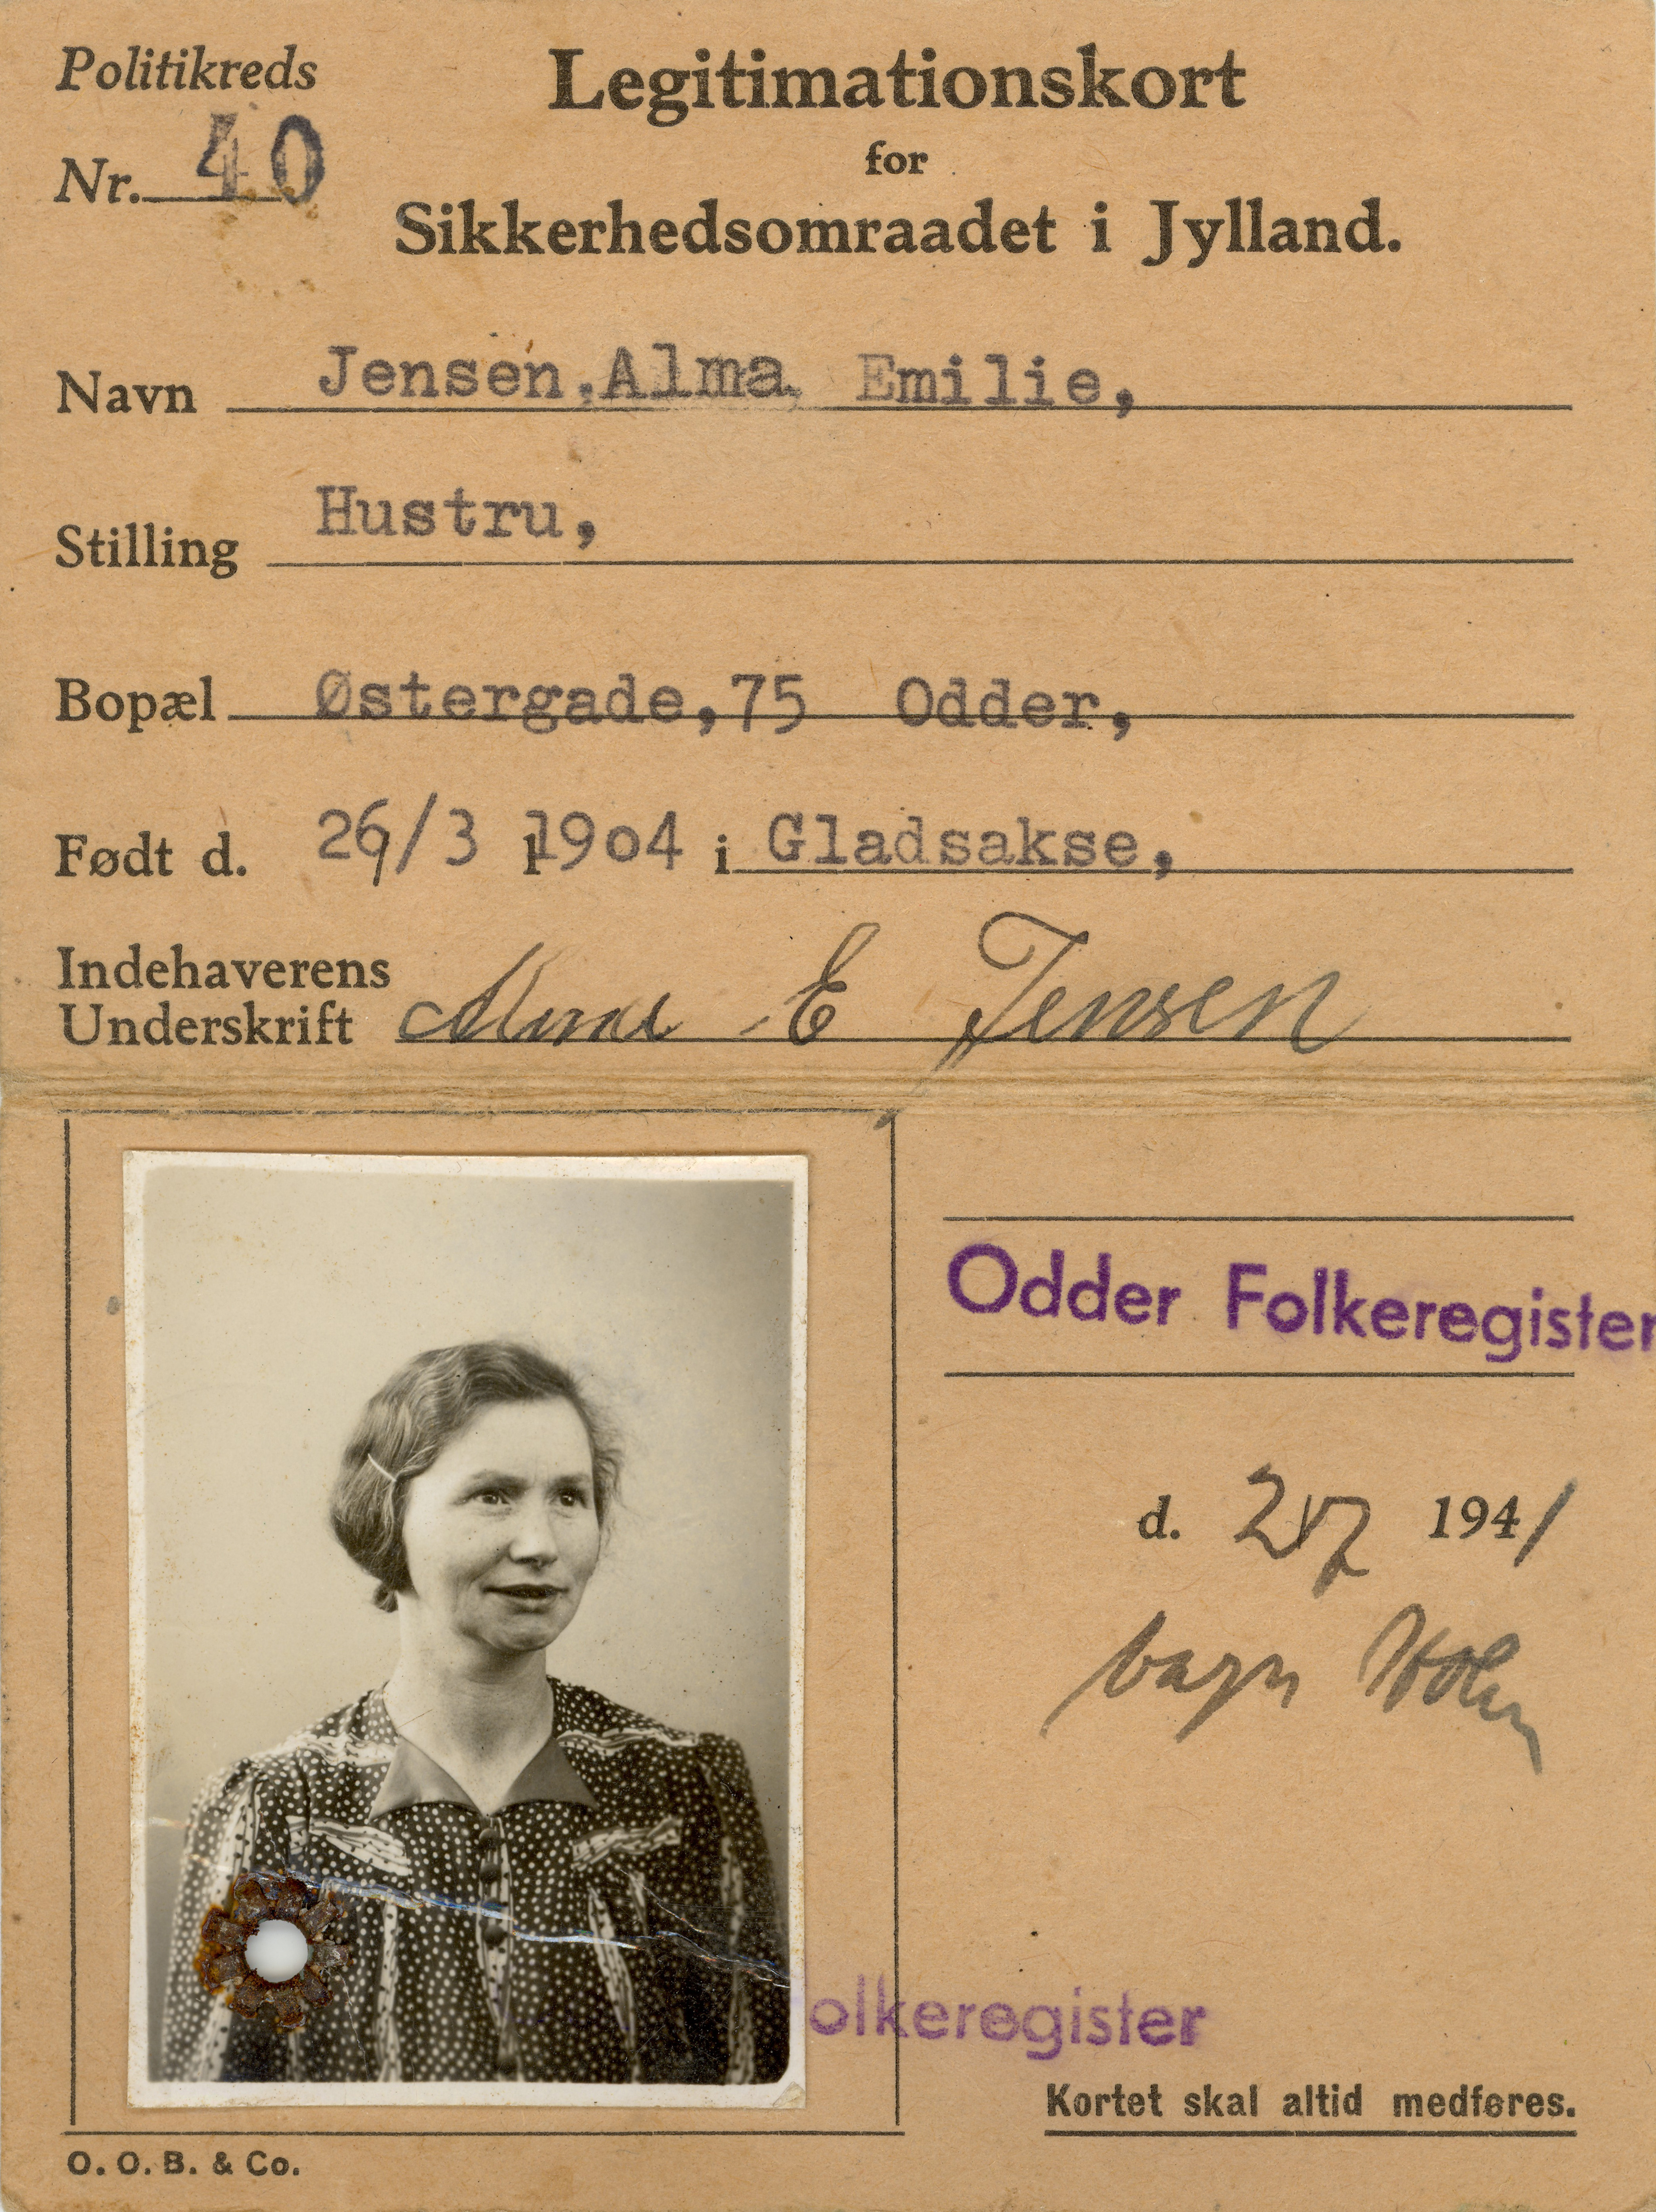 Politikreds
Nr. 40
Legitimationskort
for
Sikkerhedsomraadet i Jylland.
Navn Jensen, Alma Emilie,
Stilling Hustru,
Bopæl Østergade, 75 Odder,
Født d. 26/3 1904 i Gladsakse,
Indehaverens
Underskrift Alma E Jensen
Odder Folkeregister
d. 2/7 1941
Holm
olkeregister
Kortet skal altid medføres.
O. O. B. & Co.